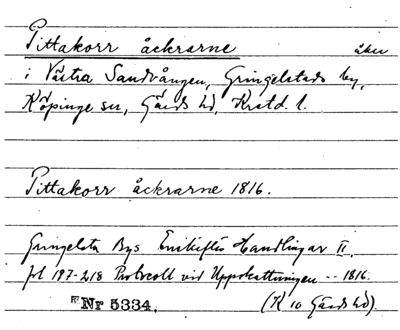 Pittakorr åckrarne åker
i Västra Sandvången, Gringelstads by,
Köpinge sn, Gärds hd, Krstd. l.
Pittakorr åckrarne 1816.
Gringelsta Bys Enskiftes Handlingar II.
fol 197-218 Protocoll vid Uppskattningen -- 1816.
Nr 5334. (K 10 Gärds hd)